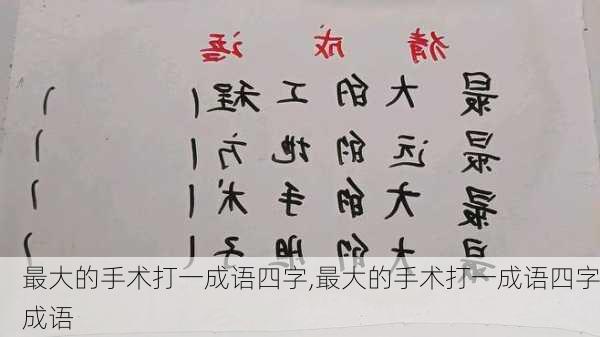 猜成语
最大的工程( )
最远的地方( )
最大的手术( )
最大的胆子( )
最大的手术打一成语四字,最大的手术打一成语四字
成语